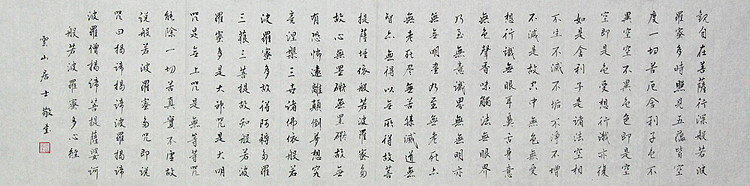 觀自在菩薩行深般若波
羅蜜多時照見五蘊皆空
度一切苦厄舍利子色不
異空空不異色色即是空
空即是色受想行識亦復
如是舍利子是諸法空相
不生不滅不垢不淨不增
不減是故空中無色無受
想行識無眼耳鼻舌身意
無色聲香味觸法無眼界
乃至無意識界無無明亦
無無明盡乃至無老死亦
無老死盡無苦集滅道無
智亦無得以無所得故菩
提薩埵依般若波羅蜜多
故心無罣礙無罣礙故無
有恐怖遠離顛倒夢想究
竟涅槃三世諸佛依般若
波羅蜜多故得阿耨多羅
三藐三菩提故知般若波
羅蜜多是大神咒是大明
咒是無上咒是無等等咒
能除一切苦真實不虛故
說般若波羅蜜多咒即說
咒曰揭諦揭諦波羅揭諦
波羅僧揭諦菩提薩婆訶
般若波羅蜜多心經
雲山居士敬書